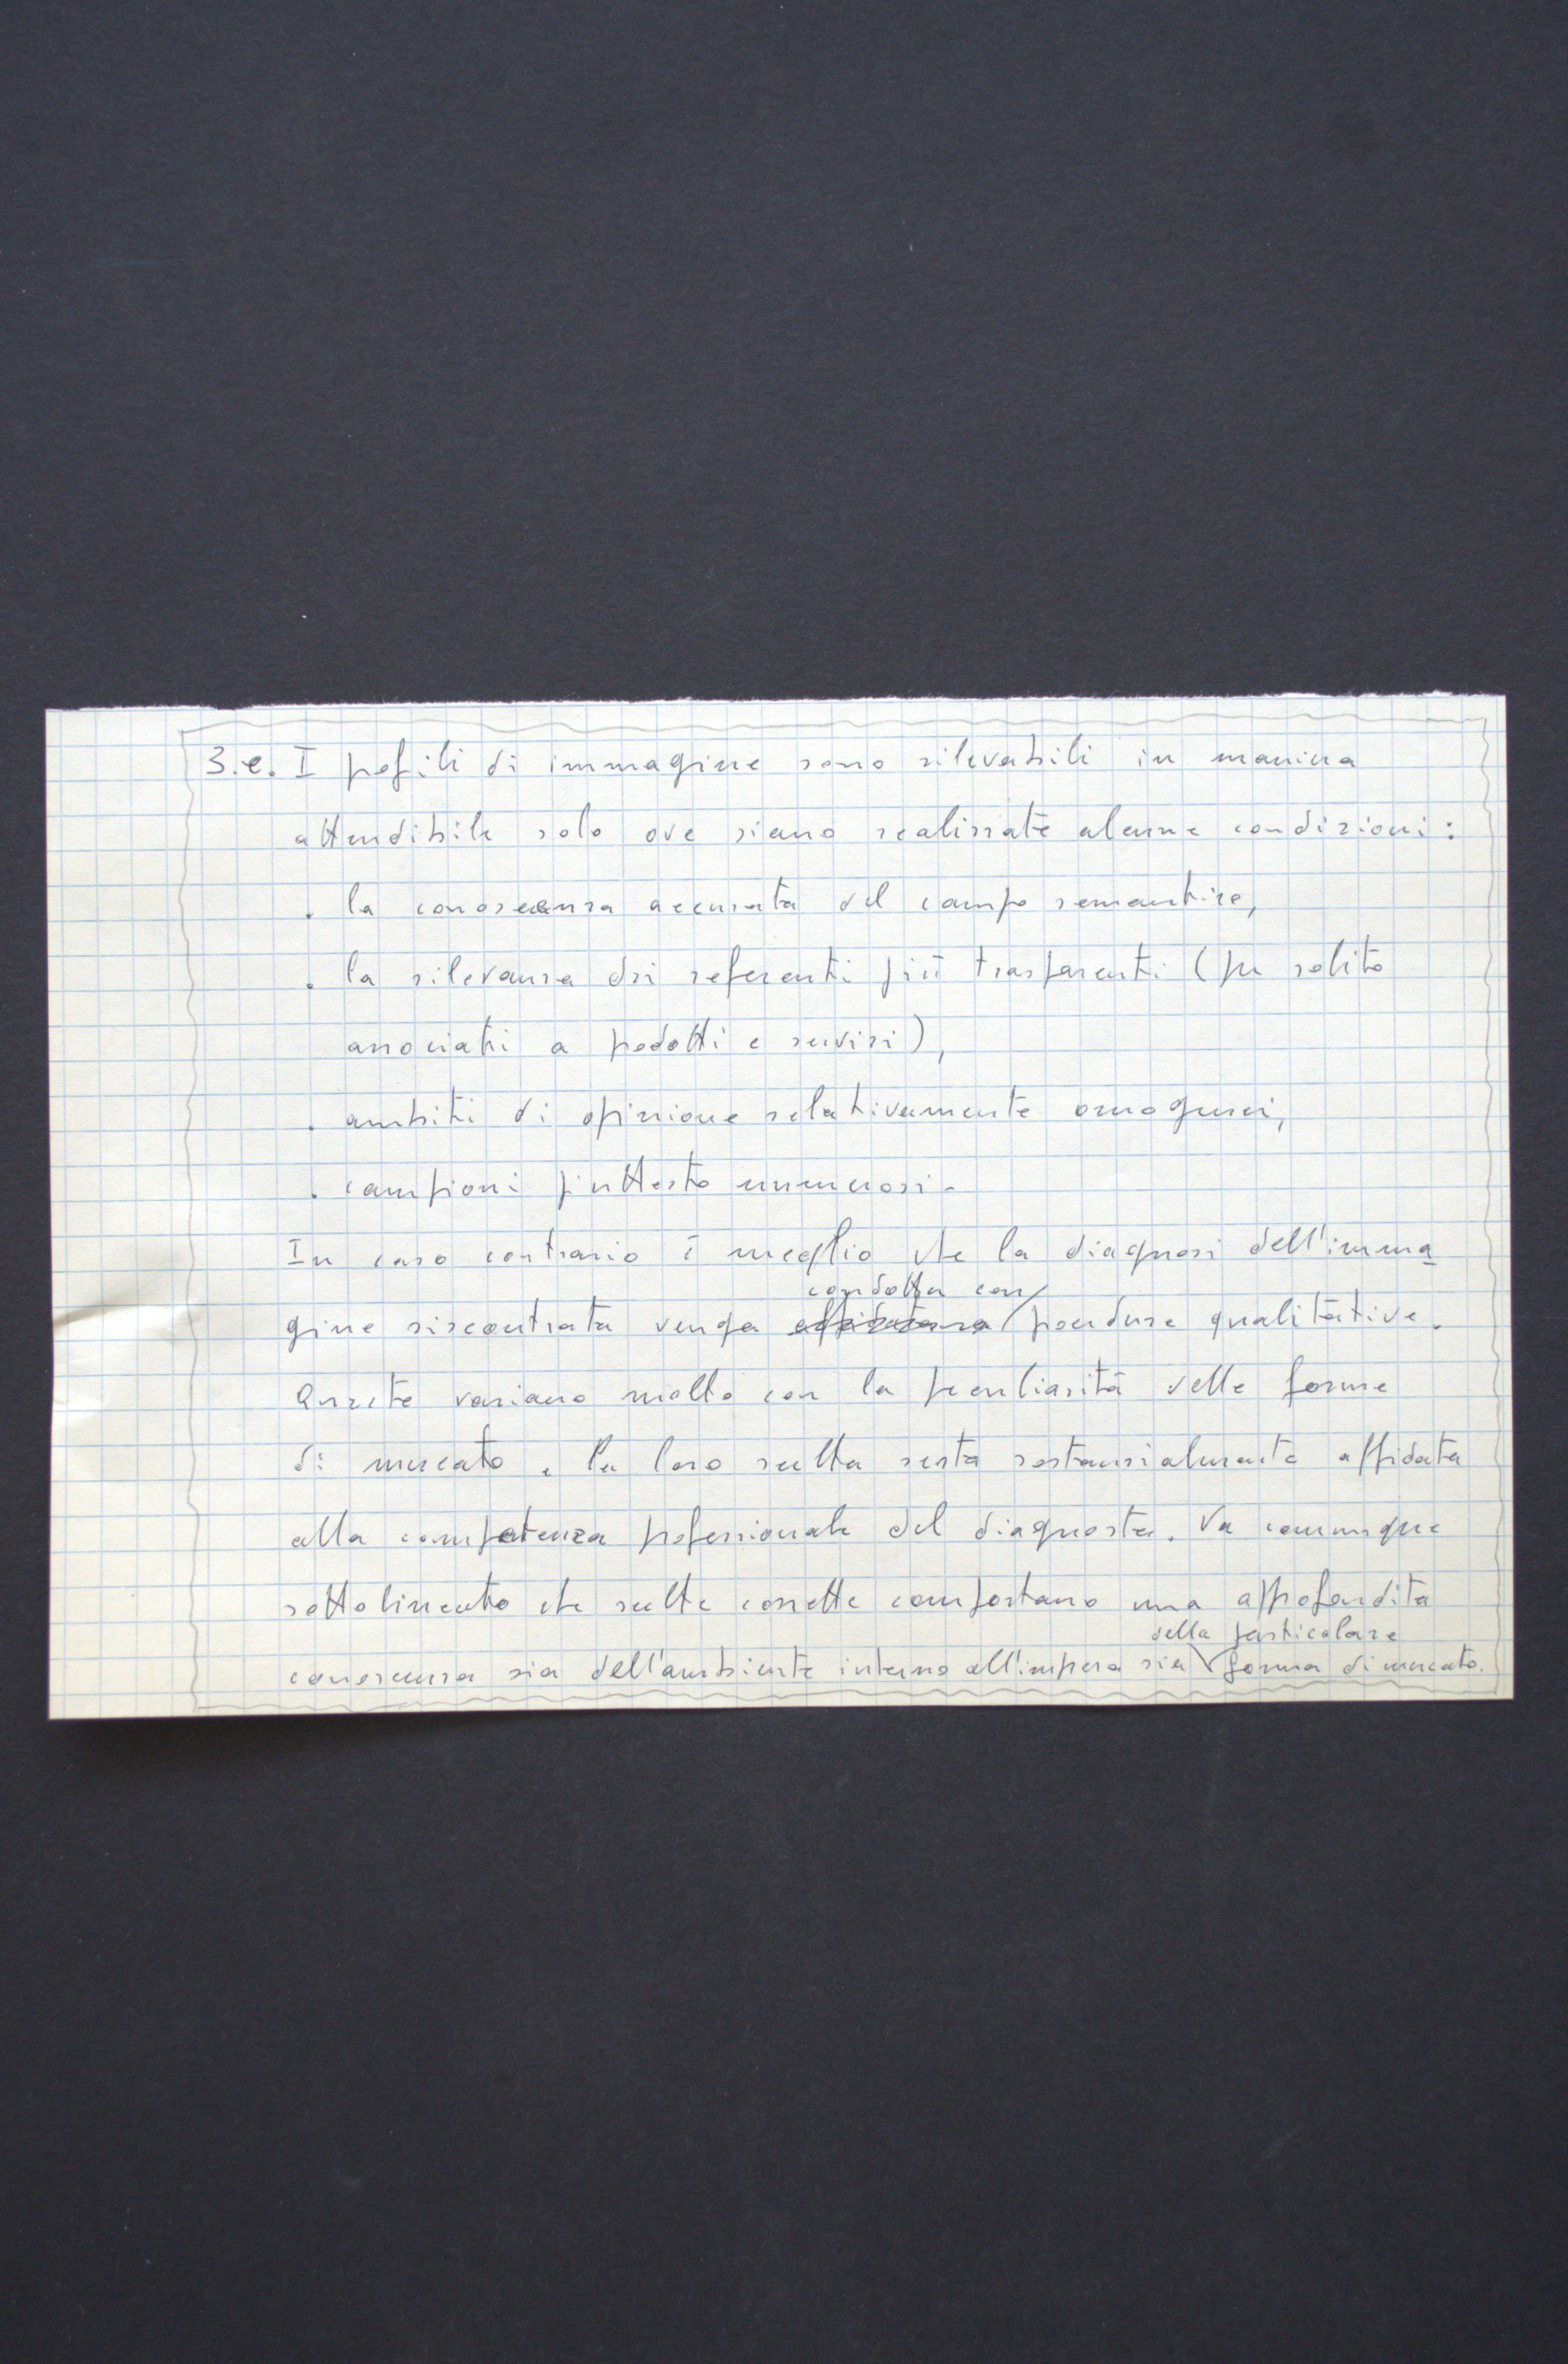 3.e. I profili di immagine sono rilevabili in maniera
attendibile solo ove siano realizzate alcune condizioni:
. la conoscenza accurata del campo semantico,
. la rilevanza dei referenti più trasparenti (per solito
associati a prodotti e servizi),
. ambiti di opinione relativamente omogenei,
. campioni piuttosto numerosi.
In caso contrario è meglio che la diagnosi dell'imma
condotta con
gine riscontrata venga procedure qualitative.
Queste variano molto con la peculiarità delle forme
di mercato e la loro scelta resta sostanzialmente affidata
alla competenza professionale del diagnosta. Va comunque
sottolineato che scelte corrette comportano una approfondita
della particolare
conoscenza sia dell'ambiente interno all'impresa sia forma di mercato.